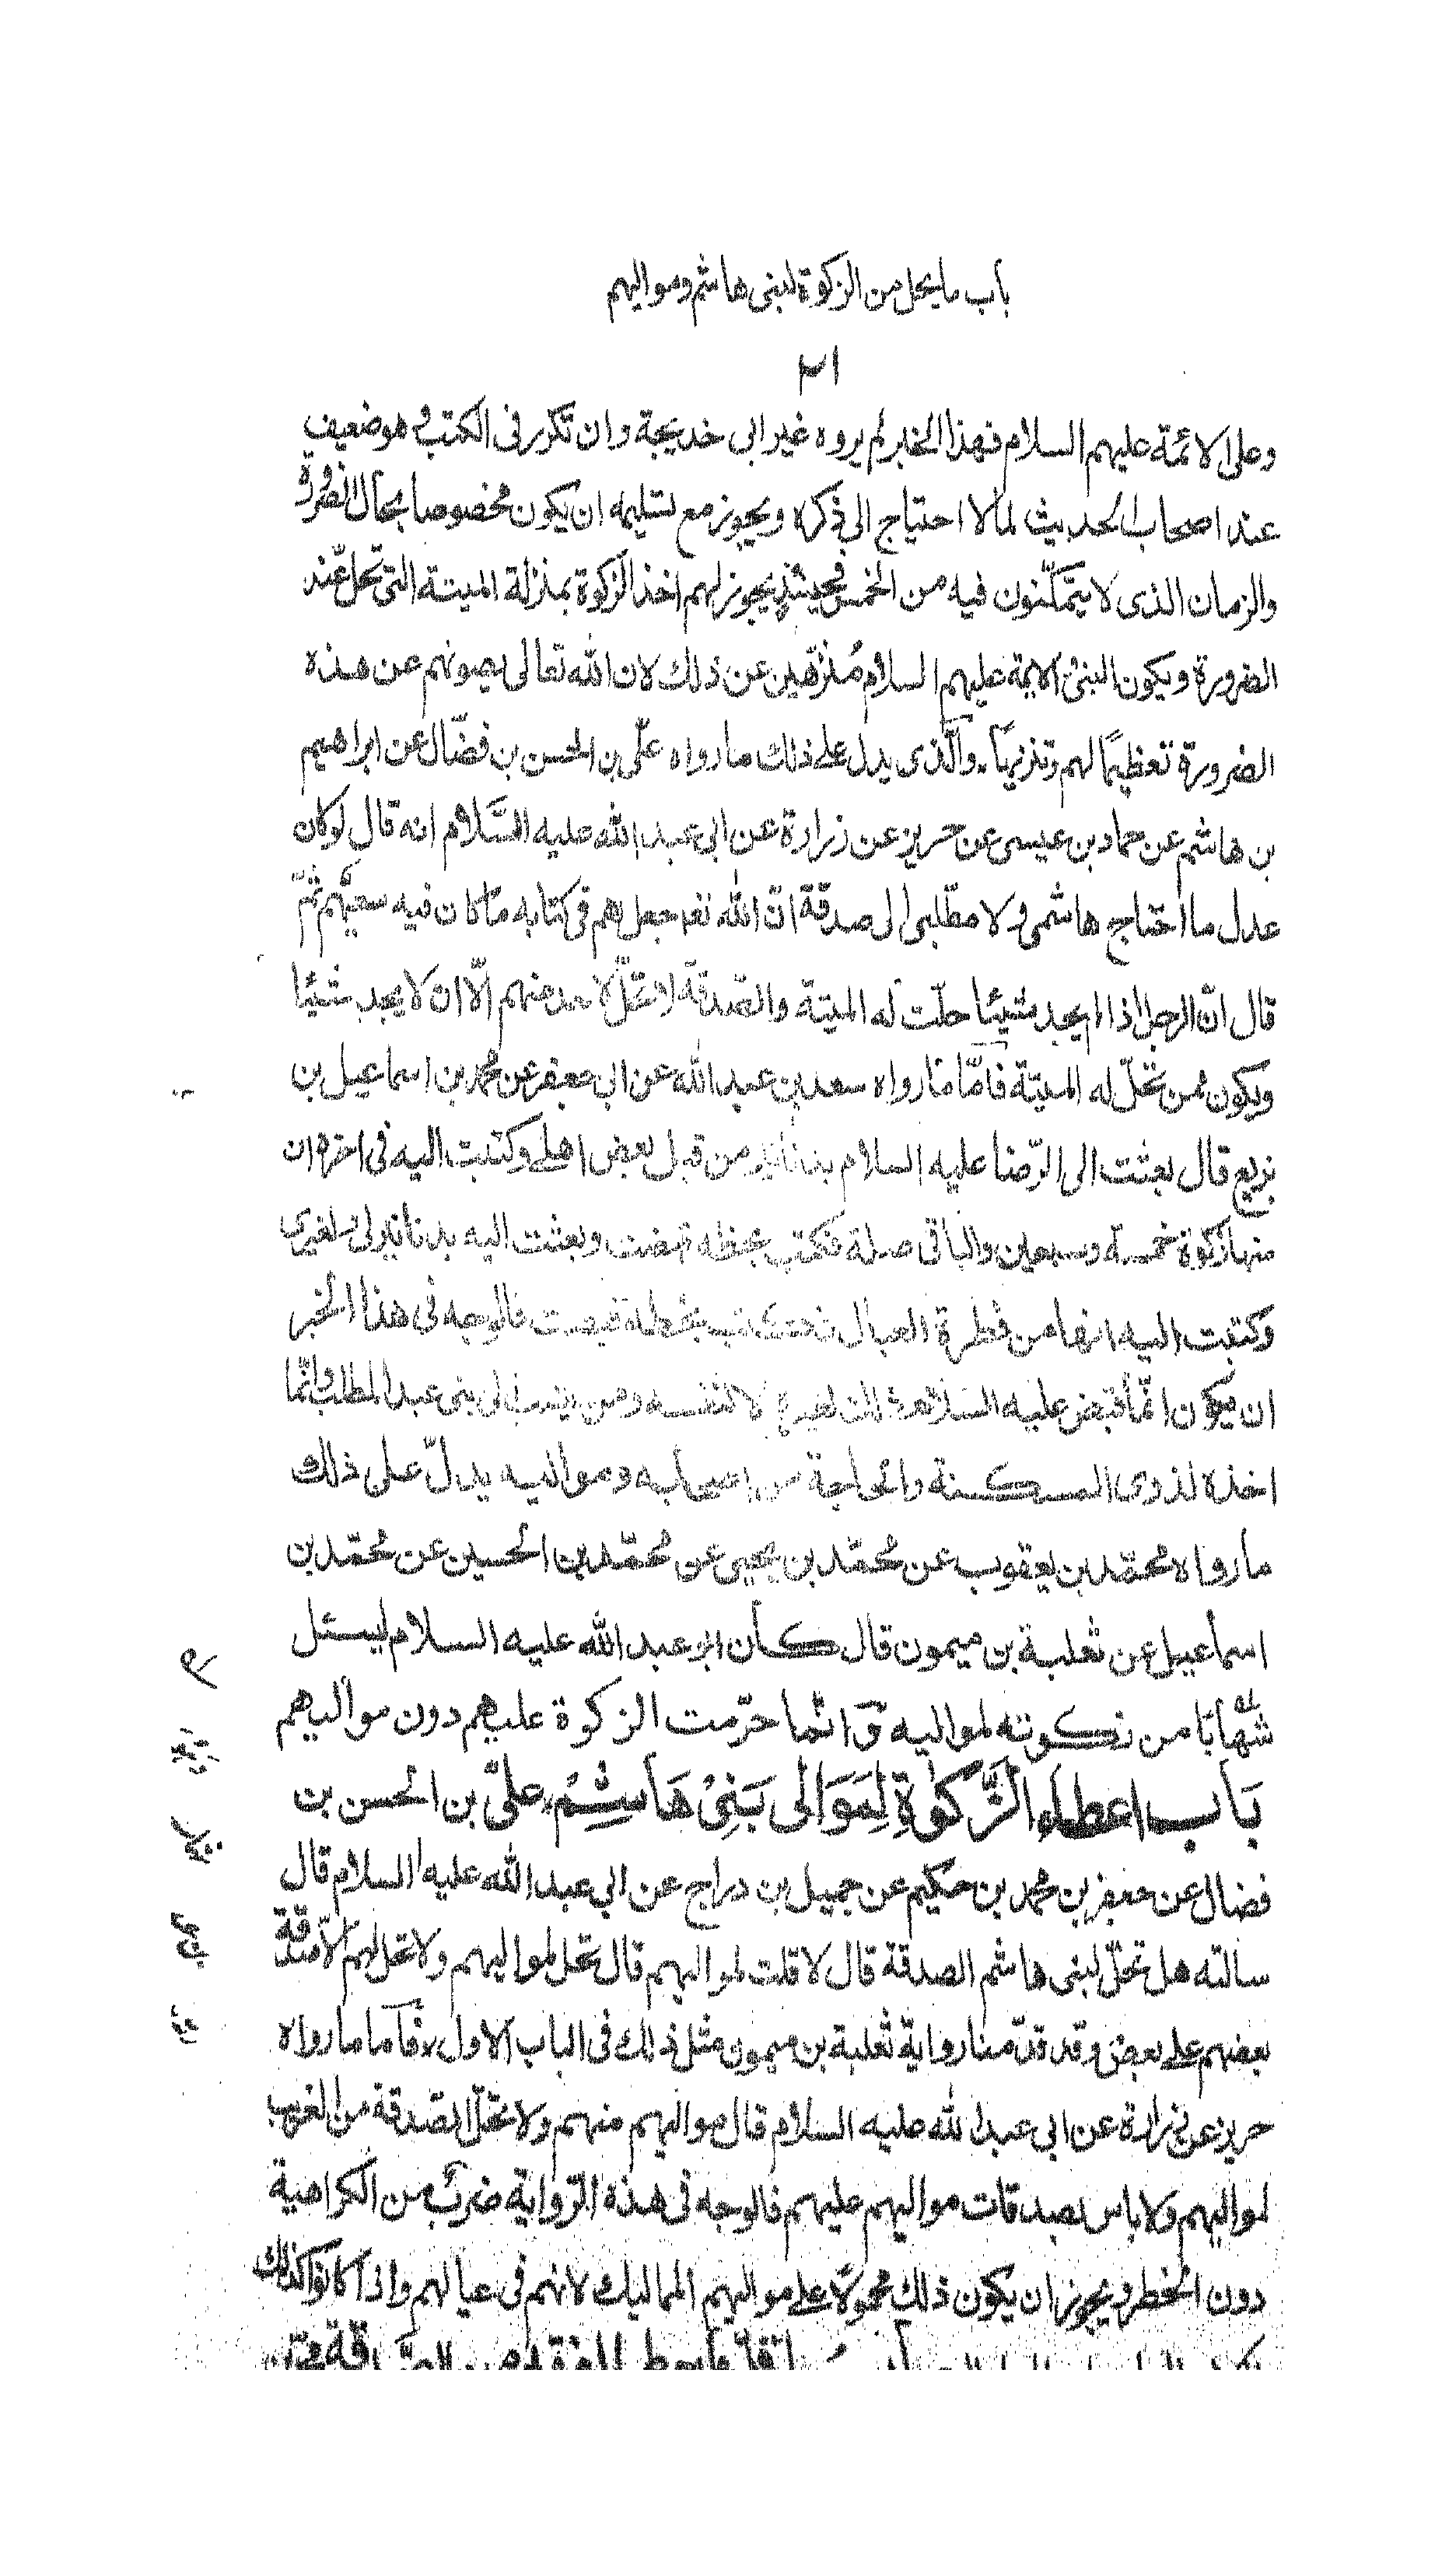 باب ما يحل من الزكوة لبنى هاشم ومواليهم
٢١
وعلى الائمة عليهم السلام فهذا الخبر لم يروه غير ابى خديجة وان تكرر فى الكتب فهو ضعيف
عند اصحاب الحديث لما لا احتياج الى ذكره ويجوز مع تسليمه ان يكون مخصوصا بحال الضرورة
والزمان الذى لا يتمكّنون فيه من الخمس فحينئذ يجوز لهم اخذ الزكوة بمنزلة الميتة التى تحل عند
الضرورة ويكون النبى والائمة عليهم السلام مُنزّهين عن ذلك لان الله تعالى يصونهم عن هذه
الضرورة تعظيمًا لهم وتنزيهًا والّذى يدل على ذلك ما رواه علّى بن الحسن بن فضّال عن ابراهيم
بن هاشم عن حماد بن عيسى عن حريز عن زرارة عن ابى عبد الله عليه السّلام انه قال لو كان
عدل ما احتاج هاشمى ولا مطّلبى الى صدقة انّ الله تعه جعل لهم فى كتابه ما كان فيه سعتهم ثمّ
قال انّ الرجل اذا لم يجد شيئا حلّت له الميتة والصّدقة لا تحلّ لاحد منهم الّا ان لا يجد شيئا
ويكون ممن تحلّ له الميتة فامّا ما رواه سعد بن عبد الله عن ابى جعفر عن محمد بن اسماعيل بن
بزيع قال بعثت الى الرّضا عليه السلام بدنانير من قبل بعض اهلى وكتبت اليه فى اخره ان
منها زكوة خمسه وسبعين والباقى صلة فكتب بخطه قبضت وبعثت اليه بدنانير لى ولغيرى
وكتبت اليه انها من فطرة العيال فكتب بخطه قبضت فالوجه فى هذا الخبر
ان يكون انّما قبض عليه السلام لغيره لا لنفسه ومن ينسب الى بنى عبد المطلب وانّما
اخذه لذوى المسكنة والحاجة من اصحابه ومواليه يدلّ على ذلك
ما رواه محمّد بن يعقوب عن مُحمّد بن يحيى عن مُحمّد بن الحسين عن مُحمّد بن
اسماعيل عن ثعلبة بن ميمون قال كان ابو عبد الله عليه السلام ليسئل
شهابًا من زكوته لمواليه وانّما حرّمت الزكوة عليهم دون مواليهم
بَاب اعطاء الزَّكوٰةِ لِمَوَالى بَنِىْ هَاشِمْ علىّ بن الحسن بن
فضال عن جعفر بن محمد بن حكيم عن جميل بن دراج عن ابى عبد الله عليه السلام قال
سالته هل تحلّ لبنى هاشم الصدقة قال لا قلت لمواليهم قال تحل لمواليهم ولا تحل لهم الّا صدقة
بعضهم على بعض وقد قدّمنا رواية ثعلبة بن ميمون مثل ذلك فى الباب الاول فاما ما رواه
حريز عن زرارة عن ابى عبد الله عليه السلام قال مواليهم منهم ولا تحلّ الصّدقة من الغريب
لمواليهم ولا باس بصدقات مواليهم عليهم فالوجه فى هذه الرّواية ضرب من الكراهية
دون الحظر ويجوز ان يكون ذلك محمولًا على مواليهم المماليك لانهم فى عيالهم واذا كانوا كذلك